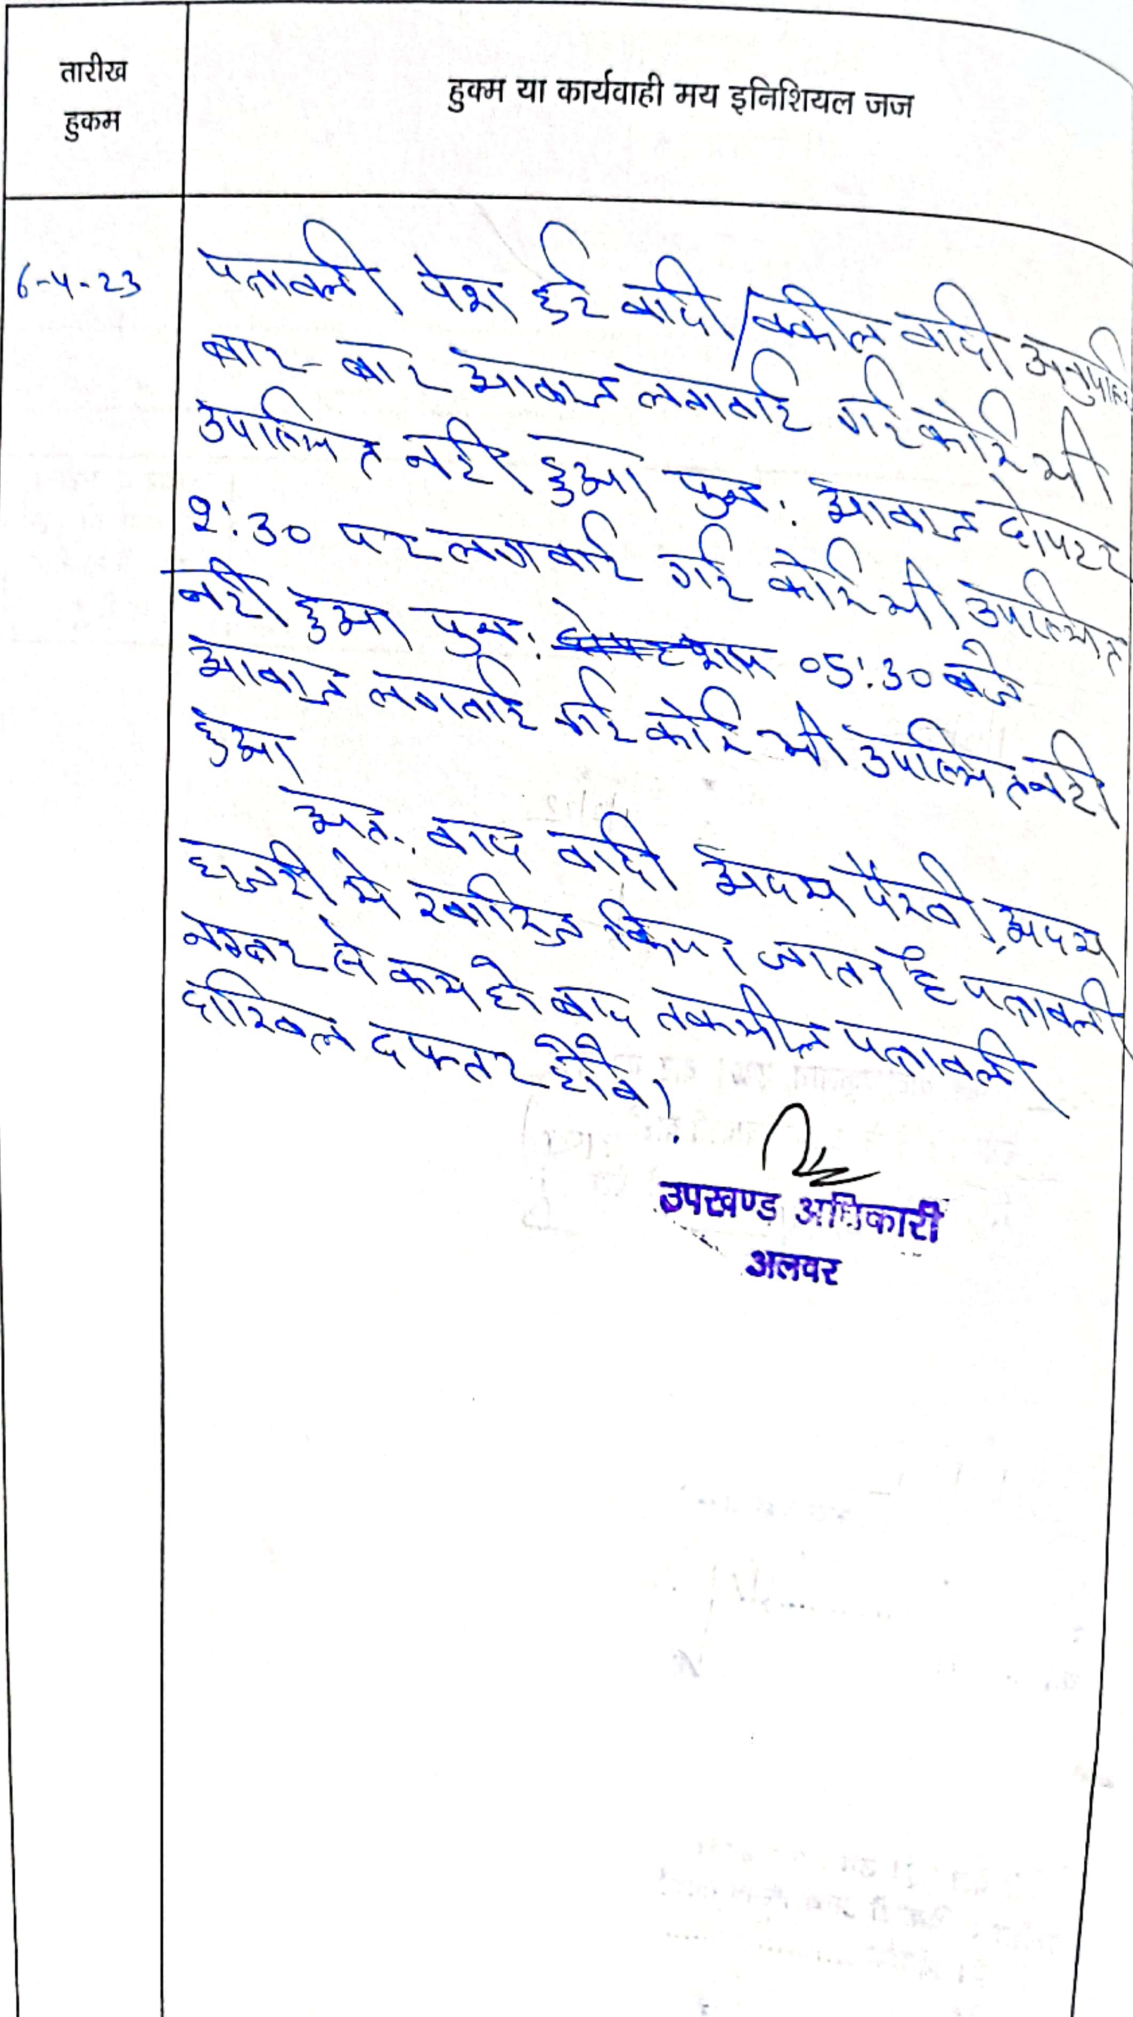 तारीख
हुकम
हुक्म या कार्यवाही मय इनिशियल जज
6-4-23
पत्रावली पेश हुई वादी/वकील वादी अनुपस्थित
बार-बार आवाज लगवाई गई कोई भी
उपस्थित नही हुआ पुनः आवाज दोपहर
2:30 पर लगवाई गई कोई भी उपस्थित
नही हुआ पुनः 05:30 बजे
आवाज लगवाई गई कोई भी उपस्थित नही
हुआ
अतः वाद वादी अदम पैरवी, अदम
हाजरी मे खारिज किया जाता है पत्रावली
नम्बर से कम हो बाद तकमील पत्रावली
दाखिल दफ्तर होवे।
उपखण्ड अधिकारी
अलवर